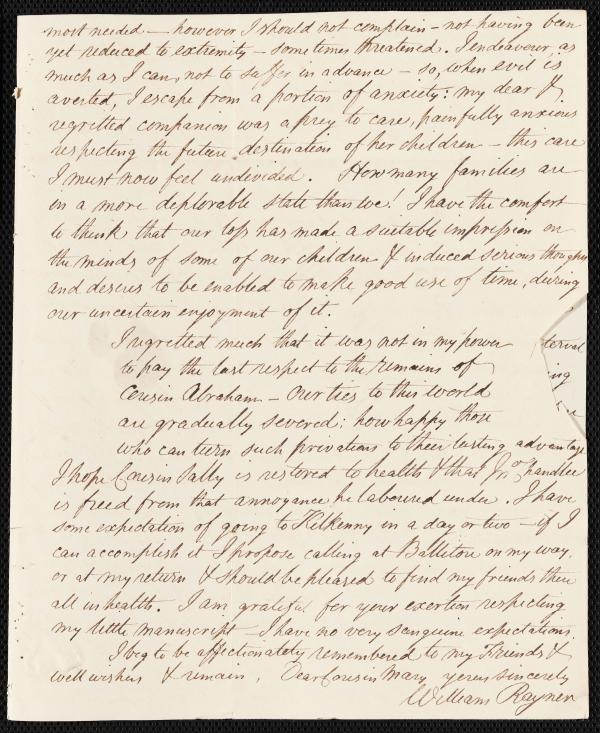 most needed — however I should not complain — not having been
yet reduced to extremity — sometimes threatened. I endeavour, as
much as I can, not to suffer in advance — so, when evil is
averted, I escape from a portion of anxiety: my dear &
regretted companion was a prey to care, painfully anxious
respecting the future destination of her children — this care
I must now feel undivided. How many families are
in a more deplorable state than we! I have the comfort
to think that our loss has made a suitable impression on
the minds of some of our children & induced serious thoughts
and desires to be enabled to make good use of time, during
our uncertain enjoyment of it.
I regretted much that it was not in my power
to pay the last respect to the remains of
Cousin Abraham — Our ties to this world
are gradually severed; how happy those
who can turn such privations to their lasting advantage
terval
ing
I hope Cousin Sally is restored to health & that Jno Chandlee
is freed from that annoyance he laboured under. I have
some expectation of going to Kilkenny in a day or two — if I
can accomplish it I propose calling at Ballitore on my way,
or at my return & should be pleased to find my friends there
all in health. I am grateful for your exertion respecting
my little manuscript — I have no very sanguine expectations.
I beg to be affectionately remembered to my Friends &
well wishers & remain, Dear Cousin Mary, yours sincerely
William Rayner